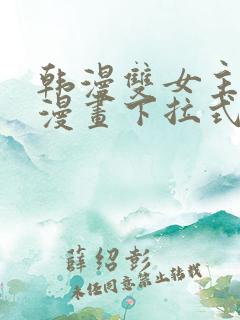 韩漫雙女主
漫畫下拉式
薛紹彭
未经同意禁止转载